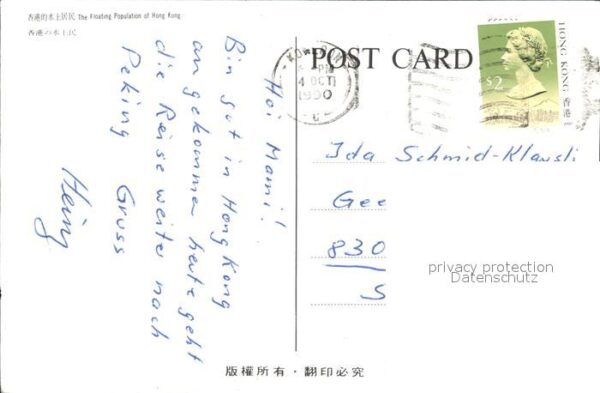 香港的水上居民 The Floating Population of Hong Kong
香港の水上民
Hoi Mami!
Bin gut in Hong Kong
angekommen heute geht
die Reise weiter nach
Peking Gruss
Heinz
POST CARD
KOWLOON
PM
4 OCT
1990
HONG KONG 香港
$2
Ida Schmid-Klausli
Gee
830
S
privacy protection
Datenschutz
版權所有·翻印必究